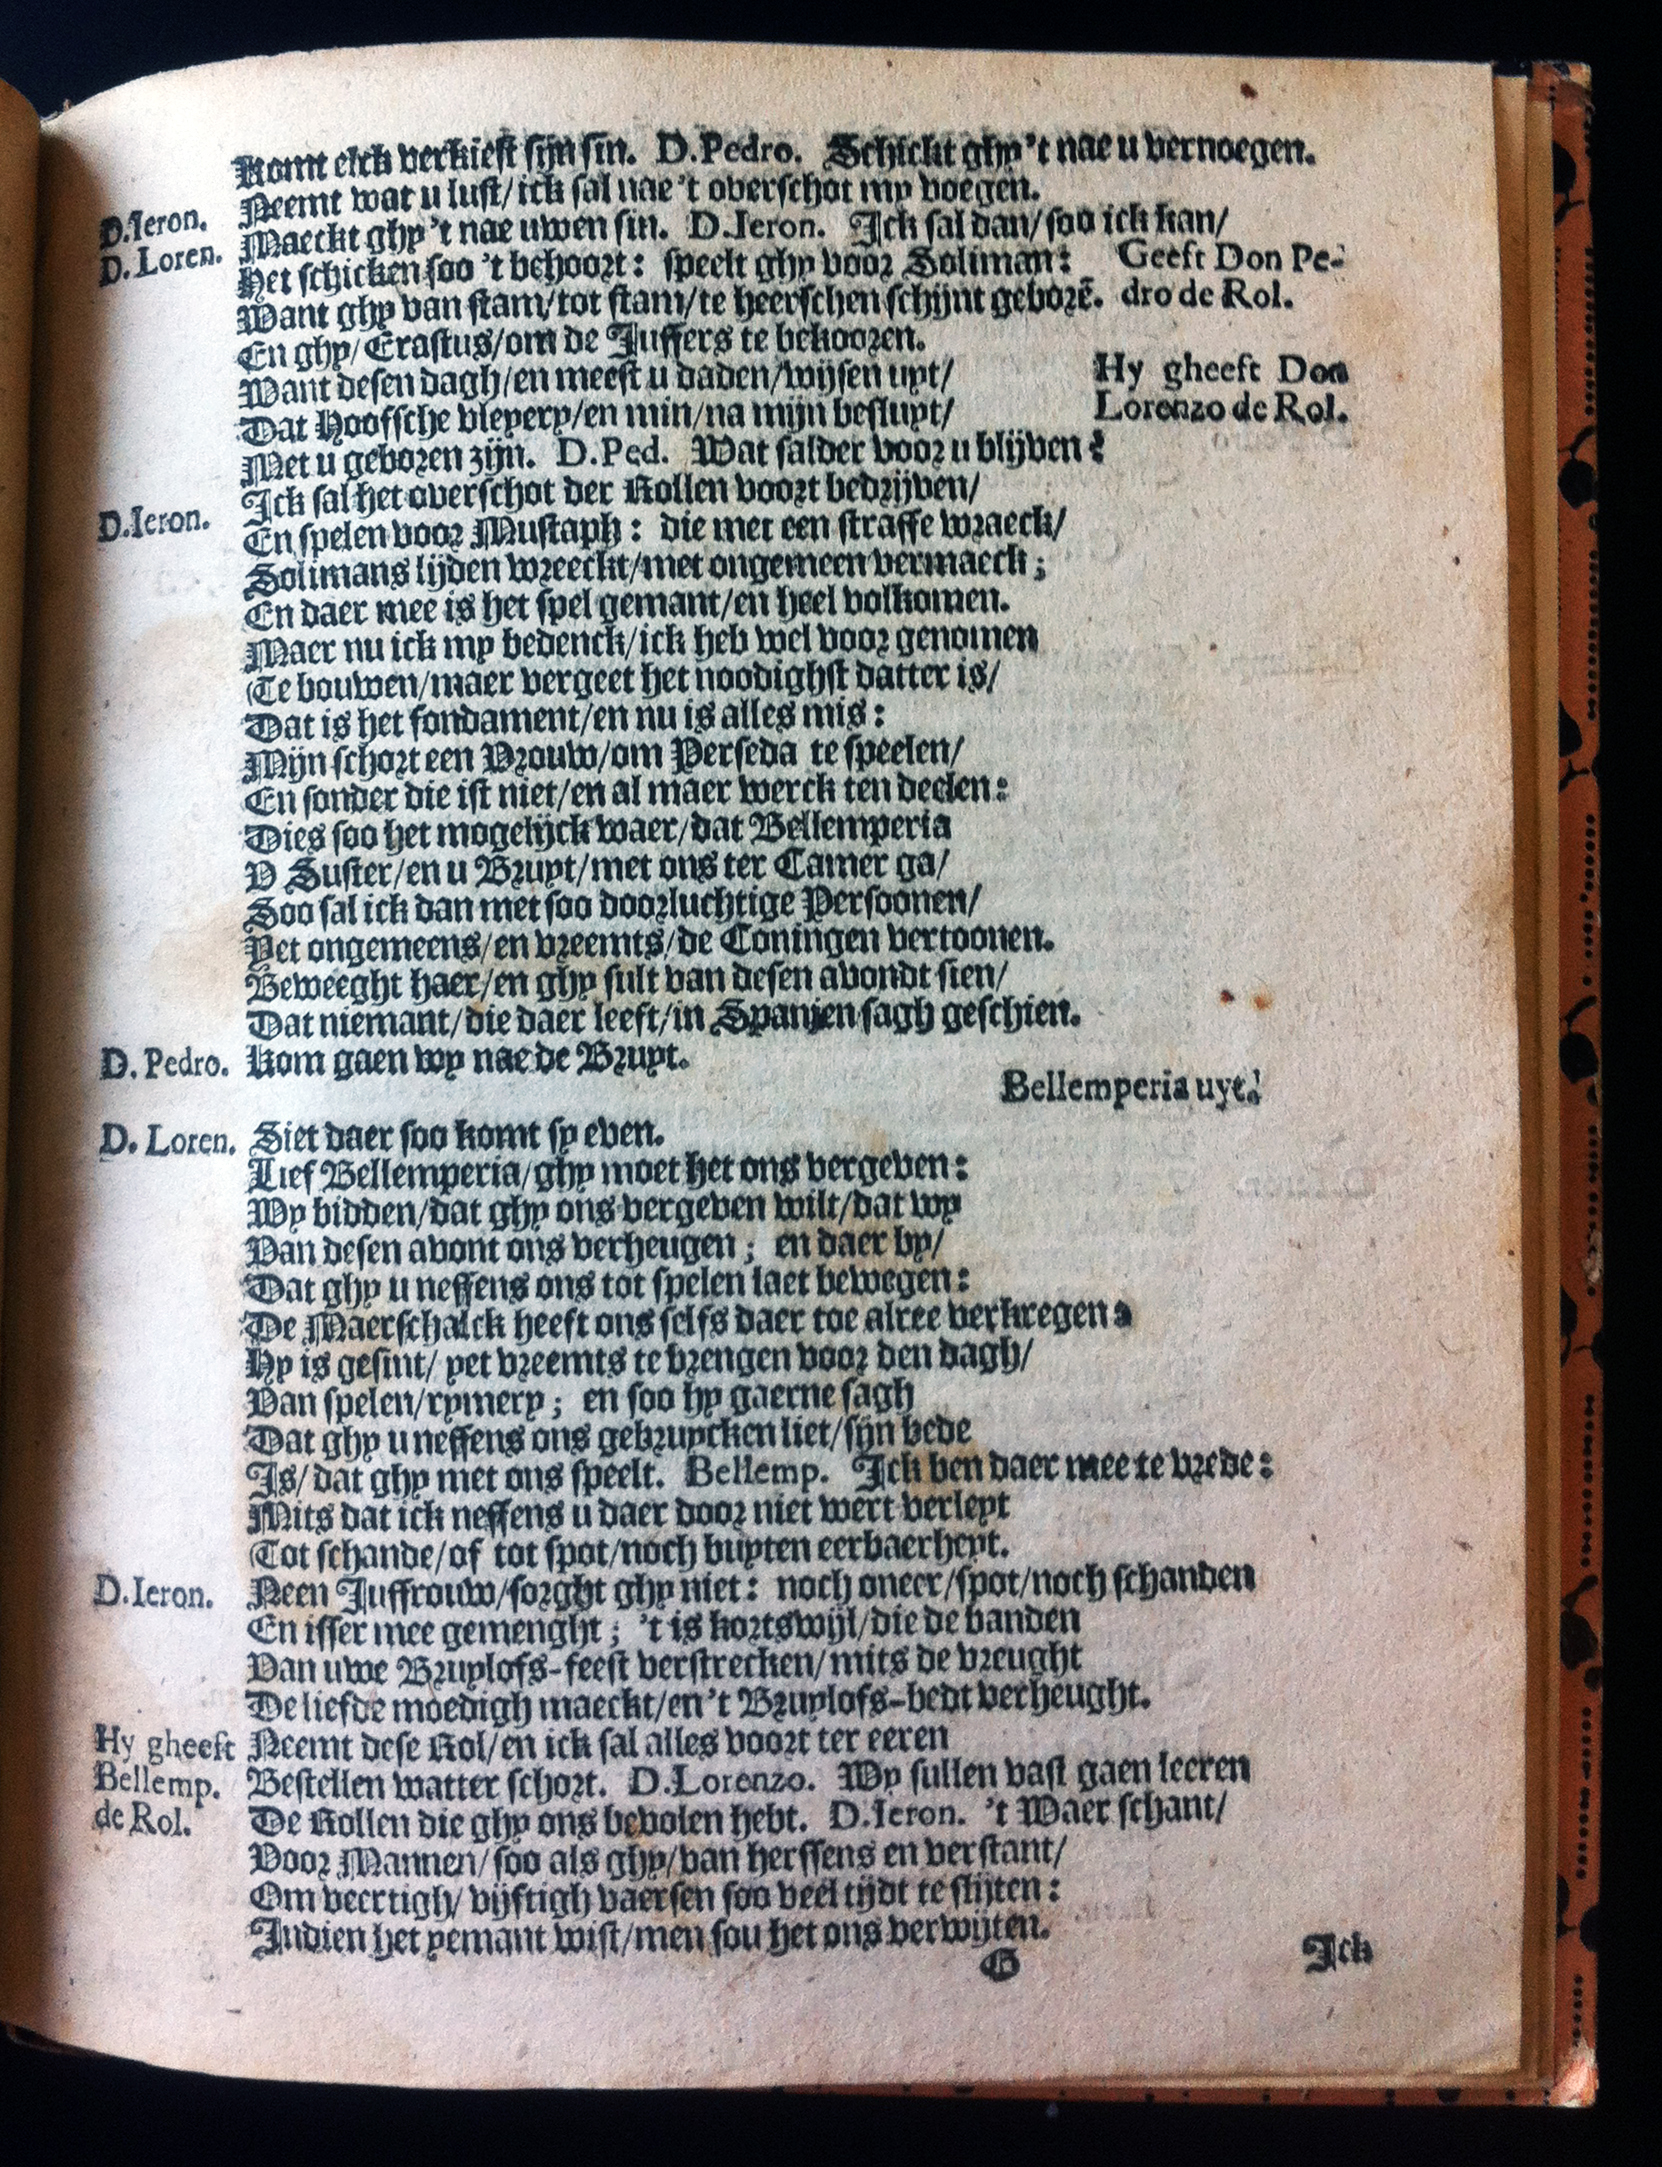 Komt elck verkiest sijn sin. D.Pedro. Schickt ghy 't nae u vernoegen.
D.Ieron. Neemt wat u lust/ick sal nae 't overschot my voegen.
D. Loren. Maeckt ghy 't nae uwen sin. D.Ieron. Ick sal dan/soo ick kan/
Het schicken soo 't behoort: speelt ghy voor Soliman: Geeft Don Pe-
Want ghy van stam/tot stam/te heerschen schijnt geborē. dro de Rol.
En ghy/Erastus/om de Juffers te bekooren.
Want desen dagh/en meest u daden/wijsen uyt/ Hy gheeft Don
Dat Hoofsche vleyery/en min/na mijn besluyt/ Lorenzo de Rol.
Met u geboren zijn. D.Ped. Wat salder voor u blijven?
D.Ieron. Ick sal het overschot der Rollen voort bedrijven/
En spelen voor Mustaph: die met een straffe wraeck/
Solimans lijden wreeckt/met ongemeen vermaeck;
En daer mee is het spel gemant/en heel volkomen.
Maer nu ick my bedenck/ick heb wel voor genomen
Te bouwen/maer vergeet het noodighst datter is/
Dat is het fondament/en nu is alles mis:
Mijn schort een Vrouw/om Perseda te speelen/
En sonder die ist niet/en al maer werck ten deelen:
Dies soo het mogelijck waer/dat Bellemperia
V Suster/en u Bruyt/met ons ter Camer ga/
Soo sal ick dan met soo doorluchtige Persoonen/
Yet ongemeens/en vreemts/de Coningen vertoonen.
Beweeght haer/en ghy sult van desen avondt sien/
Dat niemant/die daer leeft/in Spanjen sagh geschien.
D. Pedro. Kom gaen wy nae de Bruyt.
Bellemperia uyt.
D. Loren. Siet daer soo komt sy even.
Lief Bellemperia/ghy moet het ons vergeven:
Wy bidden/dat ghy ons vergeven wilt/dat wy
Van desen avont ons verheugen; en daer by/
Dat ghy u neffens ons tot spelen laet bewegen:
De Maerschalck heeft ons selfs daer toe alree verkregen,
Hy is gesint/ yet vreemts te brengen voor den dagh/
Van spelen/rymery; en soo hy gaerne sagh
Dat ghy u neffens ons gebruycken liet/sijn bede
Is/ dat ghy met ons speelt. Bellemp. Ick ben daer mee te vrede:
Mits dat ick neffens u daer door niet wert verleyt
Tot schande/of tot spot/noch buyten eerbaerheyt.
D.Ieron. Neen Juffrouw/sorght ghy niet: noch oneer/spot/noch schanden
En isser mee gemenght; 't is kortswijl/die de banden
Van uwe Bruylofs-feest verstrecken/mits de vreught
De liefde moedigh maeckt/en 't Bruylofs-bedt verheught.
Hy gheeft Neemt dese Rol/en ick sal alles voort ter eeren
Bellemp. Bestellen watter schort. D.Lorenzo. Wy sullen vast gaen leeren
de Rol. De Rollen die ghy ons bevolen hebt. D.Ieron. 't Waer schant/
Voor Mannen/soo als ghy/van herssens en verstant/
Om veertigh/ vijftigh vaersen soo veel tijdt te slijten:
Indien het yemant wist/men sou het ons verwijten.
G Ick